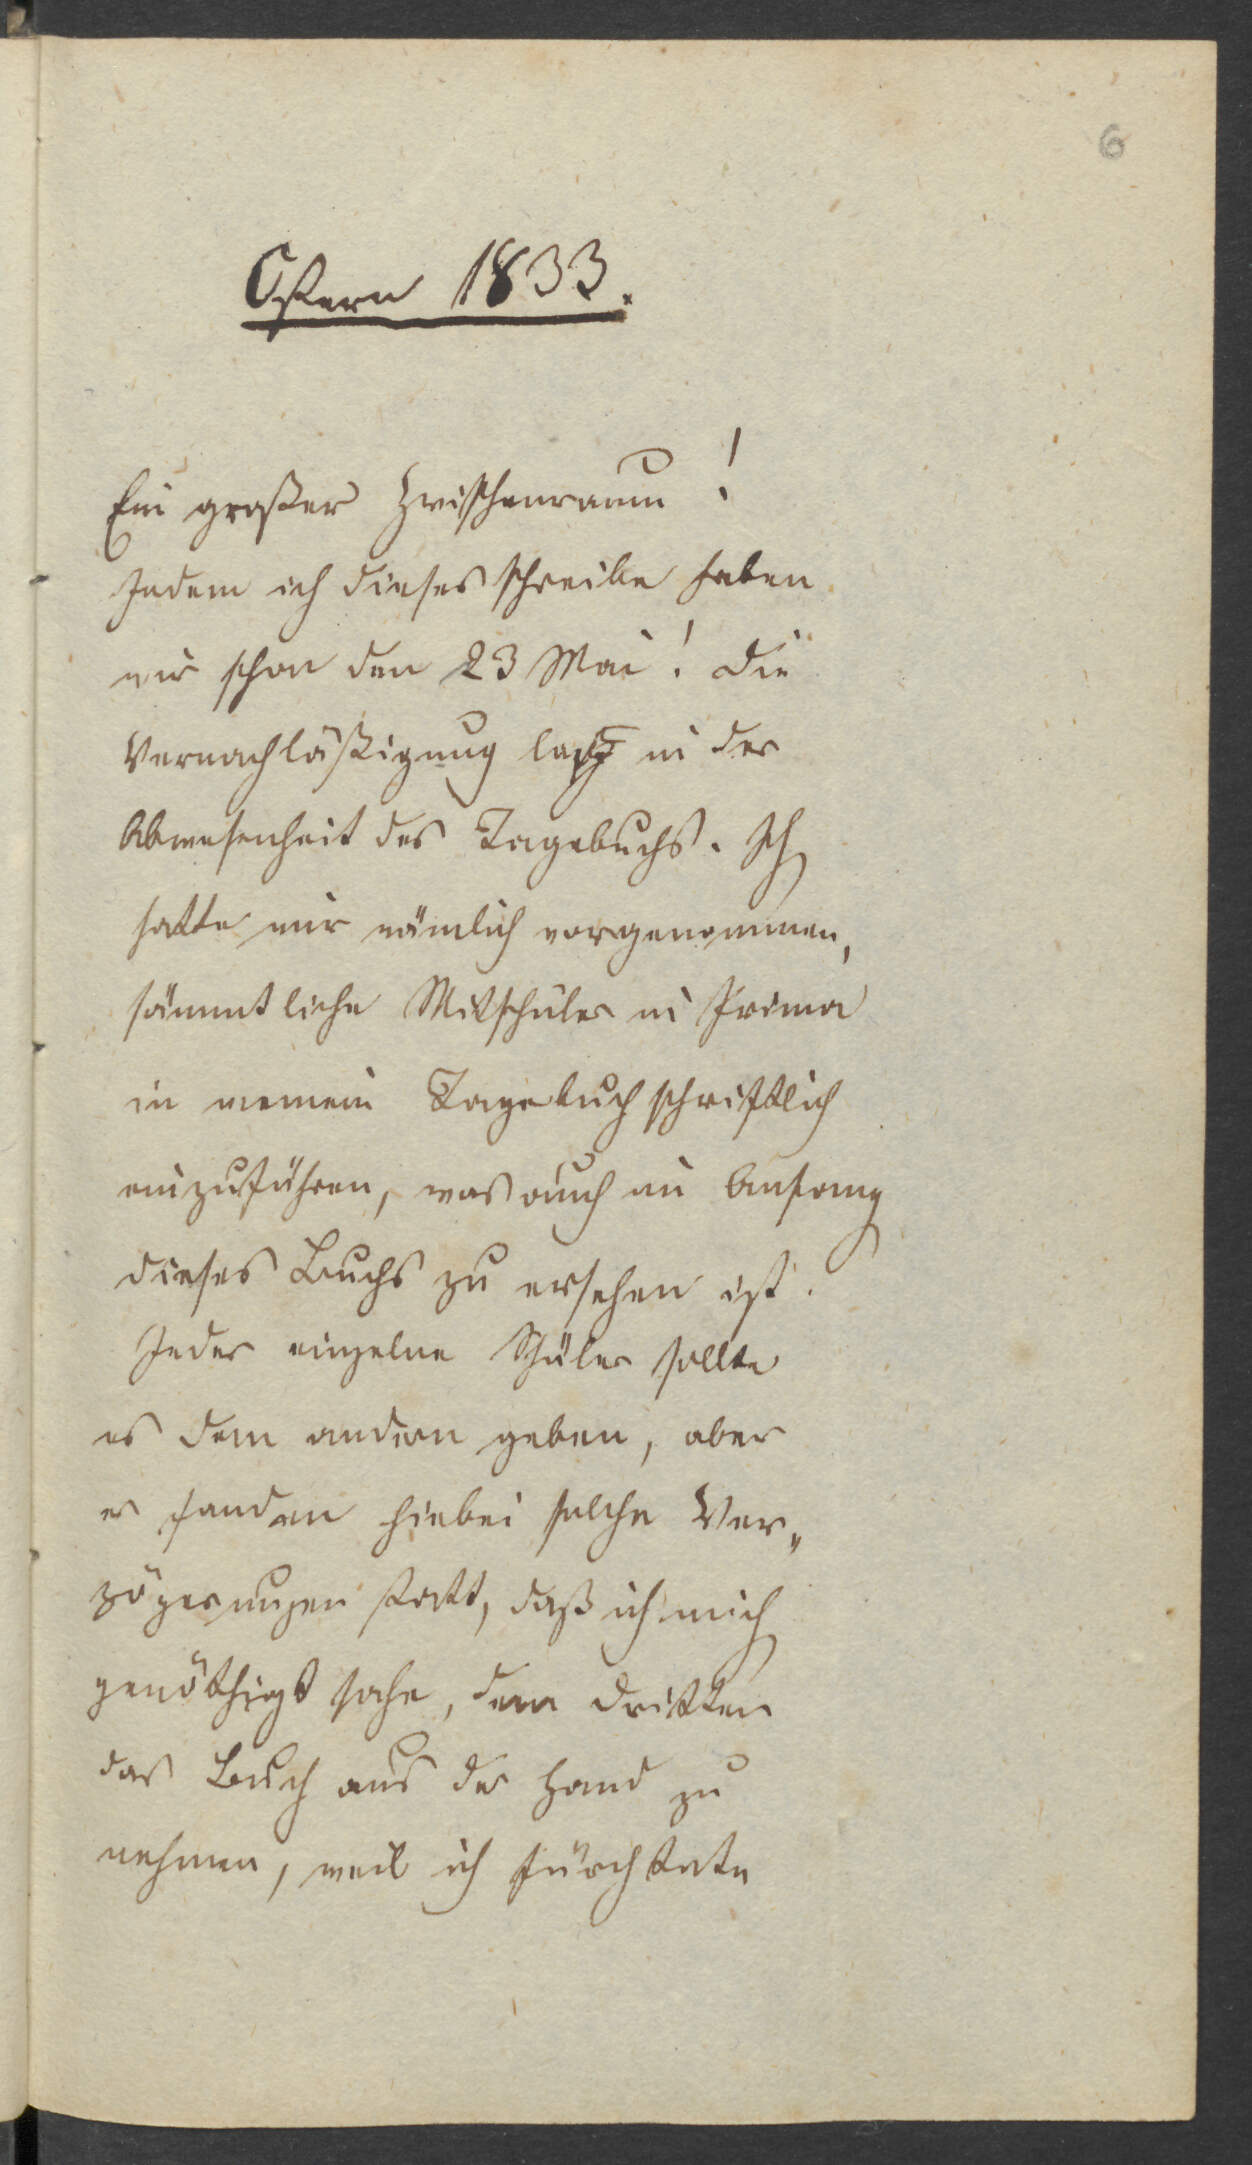 6
Ostern 1833.
Ein großer Zwischenraum!
Indem ich dieses schreibe haben
wir schon den 23 Mai! Die
Vernachläßigung lag in der
Abwesenheit des Tagebuchs. Ich
hatte mir nämlich vorgenommen,
sämmtliche Mitschüler in Prima
in meinem Tagebuch schriftlich
einzuführen, was auch im Anfang
dieses Buchs zu ersehen ist.
Jeder einzelne Schüler sollte
es dem andern geben, aber
es fanden hiebei solche Ver„
zögerungen statt, daß ich mich
genöthigt sahe, dem dritten
das Buch aus der Hand zu
nehmen, weil ich fürchtete